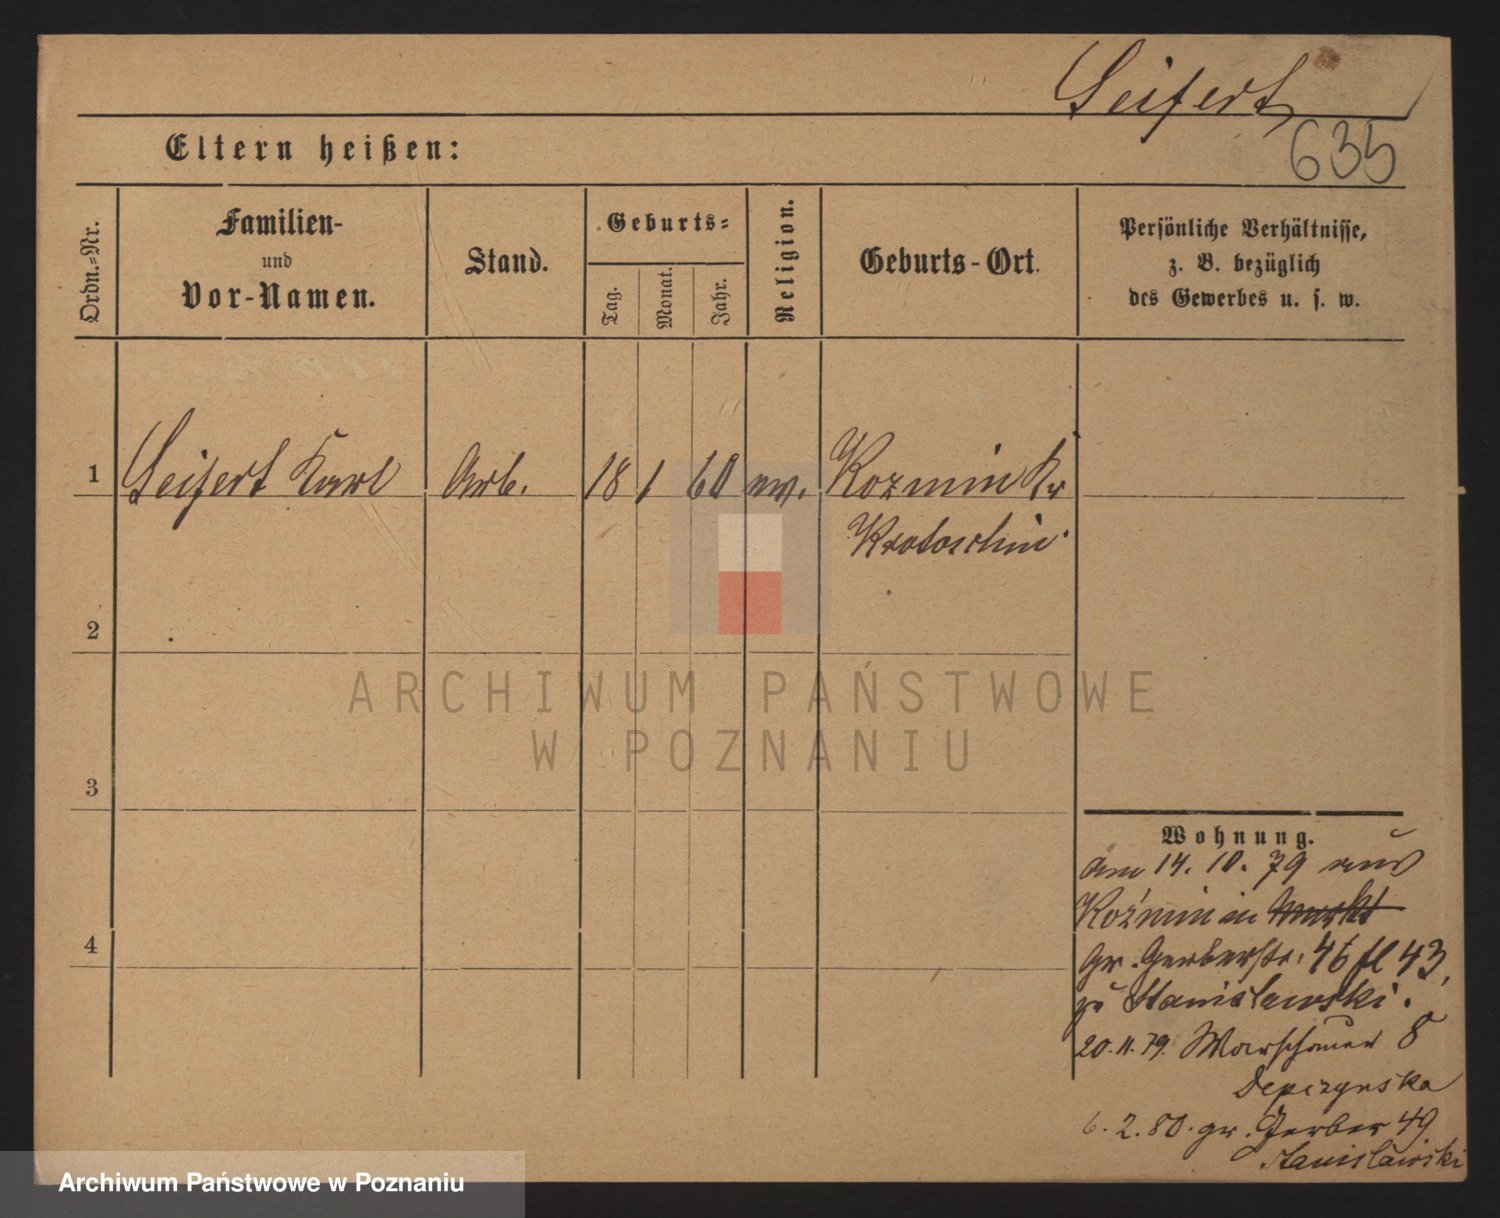 Seifert
635
Eltern heißen:
Ordn.-Nr.
Familien-
und
Vor-Namen.
Stand.
Geburts-
Tag.
Monat.
Jahr.
Religion.
Geburts-Ort.
Persönliche Verhältnisse,
z. B. bezüglich
des Gewerbes u. s. w.
1 Seifert Karl Arb. 18 1 60 ev. Kozmin Kr
Krotoschin
2
3
4
Wohnung.
am 14. 10. 79 aus
Koźmin in
Gr. Gerberstr. 46 fl 43,
zu Stanislawski.
20. 11. 79. Warschauer 8
Depczynska
6. 2. 80. gr. Gerber 49
Stanislawski
ARCHIWUM PAŃSTWOWE
W POZNANIU
Archiwum Państwowe w Poznaniu